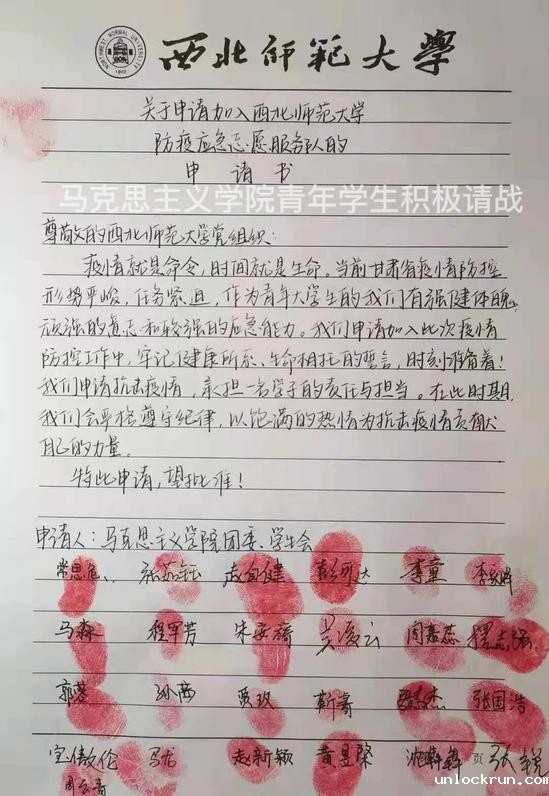 NORTHWEST NORMAL UNIVERSITY
1902
西北师范大学
关于申请加入西北师范大学
防疫应急志愿服务队的
申请书
马克思主义学院青年学生积极请战
尊敬的西北师范大学党组织:
疫情就是命令,时间就是生命。当前甘肃省疫情防控
形势严峻,任务紧迫,作为青年大学生的我们有强健体魄、
顽强的意志和较强的应急能力。我们申请加入此次疫情
防控工作中,牢记健康所系、生命相托的誓言,时刻准备着!
我们申请抗击疫情,承担一名学子的责任与担当。在此时期,
我们会严格遵守纪律,以饱满的热情为抗击疫情贡献
自己的力量。
特此申请,望批准!
申请人:马克思主义学院团委、学生会
常思危 赵自健 李童
马森 程军芳 朱安蓓 吴凌云 周嘉蕊
郭蓉 孙茜 贾玫 靳寿 张国浩
宝傲伦 马龙 赵新颖 黄昱荣 页 张锐
unlockrun.com